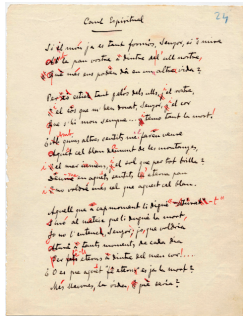 Cant Espiritual
24
Si el món ja es tant formós, Senyor, si's mira
amb la pau vostra a dintre del ull nostre,
què més ens podeu dâ en un altra vida?
Per xò estich tant gelós dels ulls, y el rostre,
y el cos que m'heu donat, Senyor, y el cor
que s'hi mou sempre... y temo tant la mort!
Amb quins altres sentits me'l fareu veure
aquet cel blau damunt de les montanyes,
y el mar inmens, y el sol que per tot brilla?
Deume en aquets sentits l'eterna pau
y no voldré més cel que aquet cel blau.
Aquell que a cap moment li digué
sinó al mateix que li dugué la mort,
jo no l'entench, Senyor; jo, que voldria
aturar a tants moments de cada dia
per fels eterns a dintre del meu cor!...
O es que aquet "fê etern" es ja la mort?
Mes llavores, la vida, què seria?